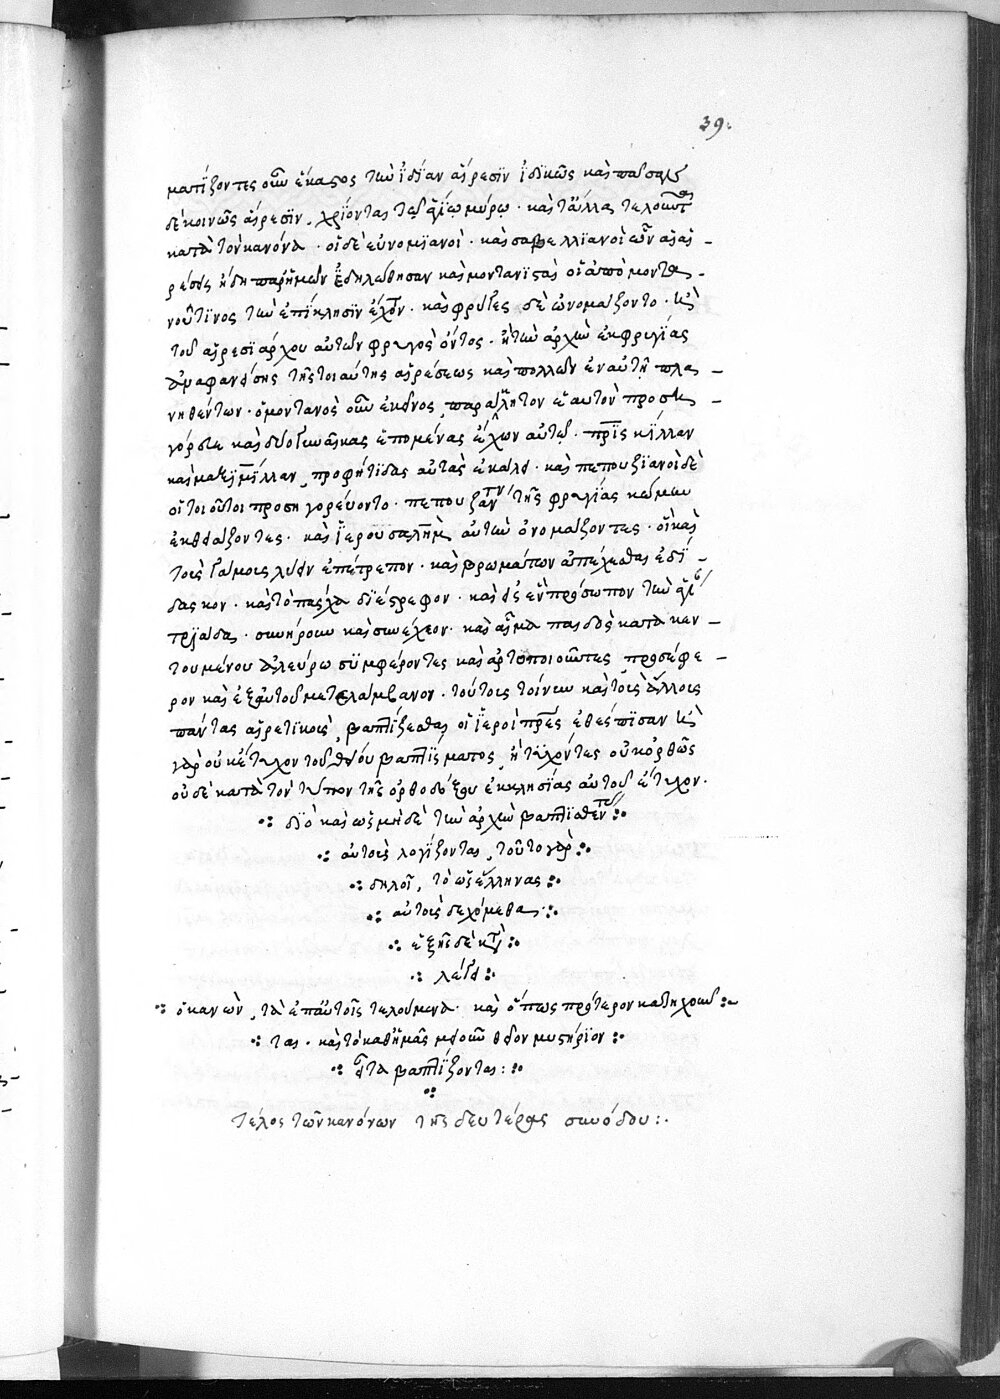 39.
ματίζοντες οὖν ἕκαστος τὴν ἰδίαν αἵρεσϊν ἰδικῶς καὶ πᾶσαν
δὲ κοινῶς αἵρεσϊν, χρίονται τῷ ἁγίῳ μύρῳ· καὶ τἄλλα τελοῦντ
κατὰ τὸν κανόνα· οἱ δὲ εὐνομϊανοὶ· καὶ σαβελλϊανοὶ
ἤδη παρ' ἡμῶν ἐδηλώθησαν καὶ μοντανισταὶ οἱ ἀπὸ μοντα-
νοῦ τϊνος τὴν ἐπίκλησϊν ἔχον· καὶ φρύγες δὲ ὠνομάζοντο·
τοῦ αἱρεσϊάρχου αὐτῶν φρυγὸς ὄντος· ἢ τὴν ἀρχὴν ἐκ φρυγίας
ἀναφανείσης τῆς τοιαύτης αἱρέσεως καὶ πολλῶν ἐν αὐτῇ πλα-
νηθέντων· ὁ μοντανὸς οὖν ἐκεῖνος, παράκλητον ἑαυτὸν προση-
γόρευε καὶ δύο γυναῖκας ἑπομένας ἔχων αὐτῷ· πρῖς κϊλλαν
καὶ μαξϊμϊλλαν, προφήτϊδας αὐτὰς ἐκάλει· καὶ πεπουζϊανοὶ δὲ
οἱ τοιοῦτοι προσηγορεύοντο· πεπουζαν τῆς φρυγίας κώμην
ἐκθειάζοντες· καὶ ἱερουσαλὴμ αὐτὴν ὀνομάζοντες· οἳ καὶ
τοὺς γάμους λύειν ἐπέτρεπον· καὶ βρωμάτων ἀπέχεσθαι ἐδί-
δασκον· καὶ τὸ πάσχα διέστρεφον· καὶ εἰς ἓν πρόσωπον τὴν ἁγί
τριάδα· συνῄρουν καὶ συνέχεον· καὶ αἷμα παιδὸς κατακεν-
τουμένου ἀλεύρῳ συμφέροντες καὶ ἀρτοποιοῦντες προσέφε-
ρον καὶ ἐξ αὐτοῦ μετελάμβανον· τούτους τοίνυν καὶ τοὺς ἄλλους
πάντας αἱρετϊκοὺς, βαπτίζεσθαι οἱ ἱεροὶ πρες ἐθέσπϊσαν
γὰρ οὐκ ἔτυχον τοῦ θείου βαπτίσματος, ἢ τυχόντες οὐκ ὀρθῶς
οὐδὲ κατὰ τὸν τύπον τῆς ὀρθοδόξου ἐκκλησίας αὐτοῦ ἔτυχον.
διὸ καὶ ὡς μηδὲ τὴν ἀρχὴν βαπτισθέντ
αὐτοὺς λογίζονται, τοῦτο γὰρ
δηλοῖ, τὸ ὡς ἕλληνας
αὐτοὺς δεχόμεθα·
ἑξῆς δὲ
λέγει
ὁ κανὼν, τὰ ἐπ' αὐτοῖς τελούμενα· καὶ ὅπως πρότερον κατηχοῦν-
ται· καὶ τὸ καθ' ἡμᾶς μυοῦ θεῖον μυστήριον
εἶτα βαπτίζονται:
τέλος τῶν κανόνων τῆς δευτέρας συνόδου:.